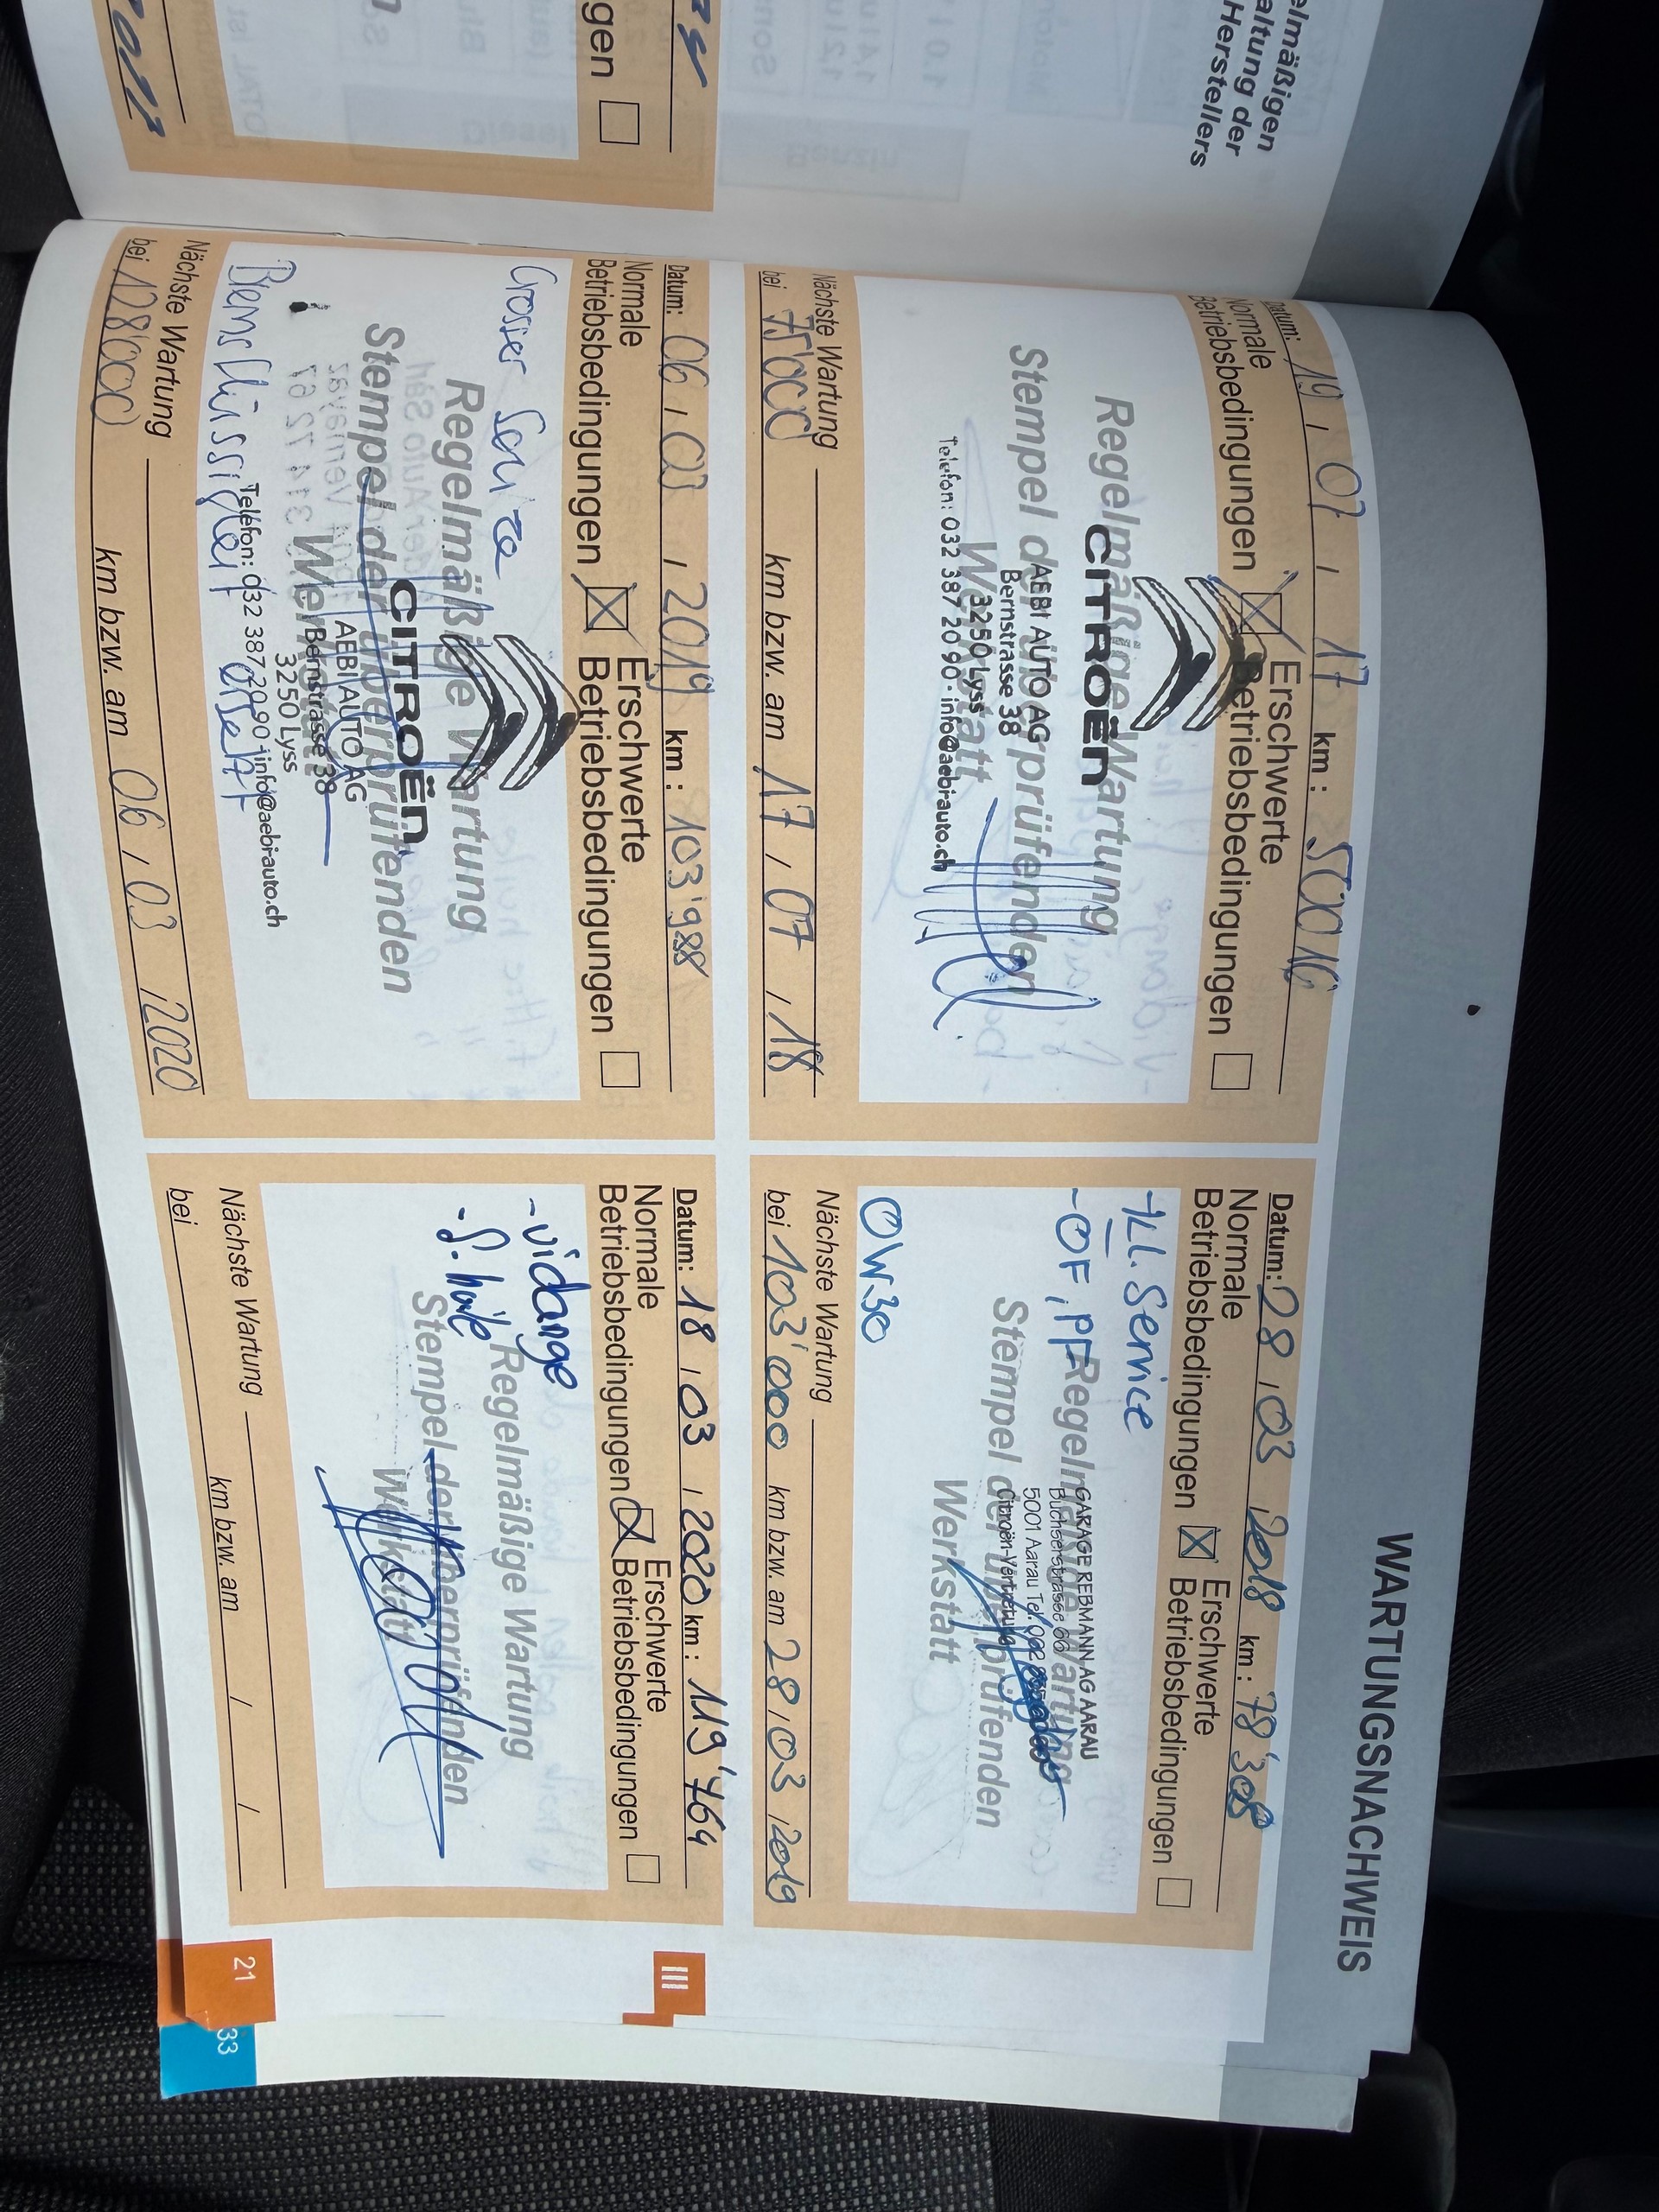 elmäßigen
altung der
Herstellers
gen
WARTUNGSNACHWEIS
Datum: 19 / 07 / 17 km : 50016
Normale
Betriebsbedingungen
Erschwerte
Betriebsbedingungen
CITROËN
Regelmäßige Wartung
Stempel der überprüfenden
Werkstatt
AEBI AUTO AG
Bernstrasse 38
3250 Lyss
Telefon: 032 387 20 90 - info@aebiauto.ch
Nächste Wartung
bei 75'000 km bzw. am 17 / 07 / 18
Datum: 28 / 03 / 2018 km : 78'308
Normale
Betriebsbedingungen
Erschwerte
Betriebsbedingungen
- kl. Service
- ÖF, PF
Regelmäßige Wartung
Stempel der überprüfenden
Werkstatt
GARAGE REBMANN AG AARAU
Buchserstrasse 66
5001 Aarau Tel. 062
Citroën-Vertretung
0W30
Nächste Wartung
bei 103'000 km bzw. am 28 / 03 / 2019
Datum: 06 / 03 / 2019 km : 103'988
Normale
Betriebsbedingungen
Erschwerte
Betriebsbedingungen
Grosser Service
Regelmäßige Wartung
Stempel der überprüfenden
Werkstatt
CITROËN
AEBI AUTO AG
Bernstrasse 38
3250 Lyss
Telefon: 032 387 20 90 - info@aebiauto.ch
Bremsflüssigkeit ersetzt
Nächste Wartung
bei 128'000 km bzw. am 06 / 03 / 2020
Datum: 18 / 03 / 2020 km : 119'764
Normale
Betriebsbedingungen
Erschwerte
Betriebsbedingungen
- vidange
Regelmäßige Wartung
Stempel der überprüfenden
Werkstatt
Nächste Wartung
bei km bzw. am / /
III
21
33